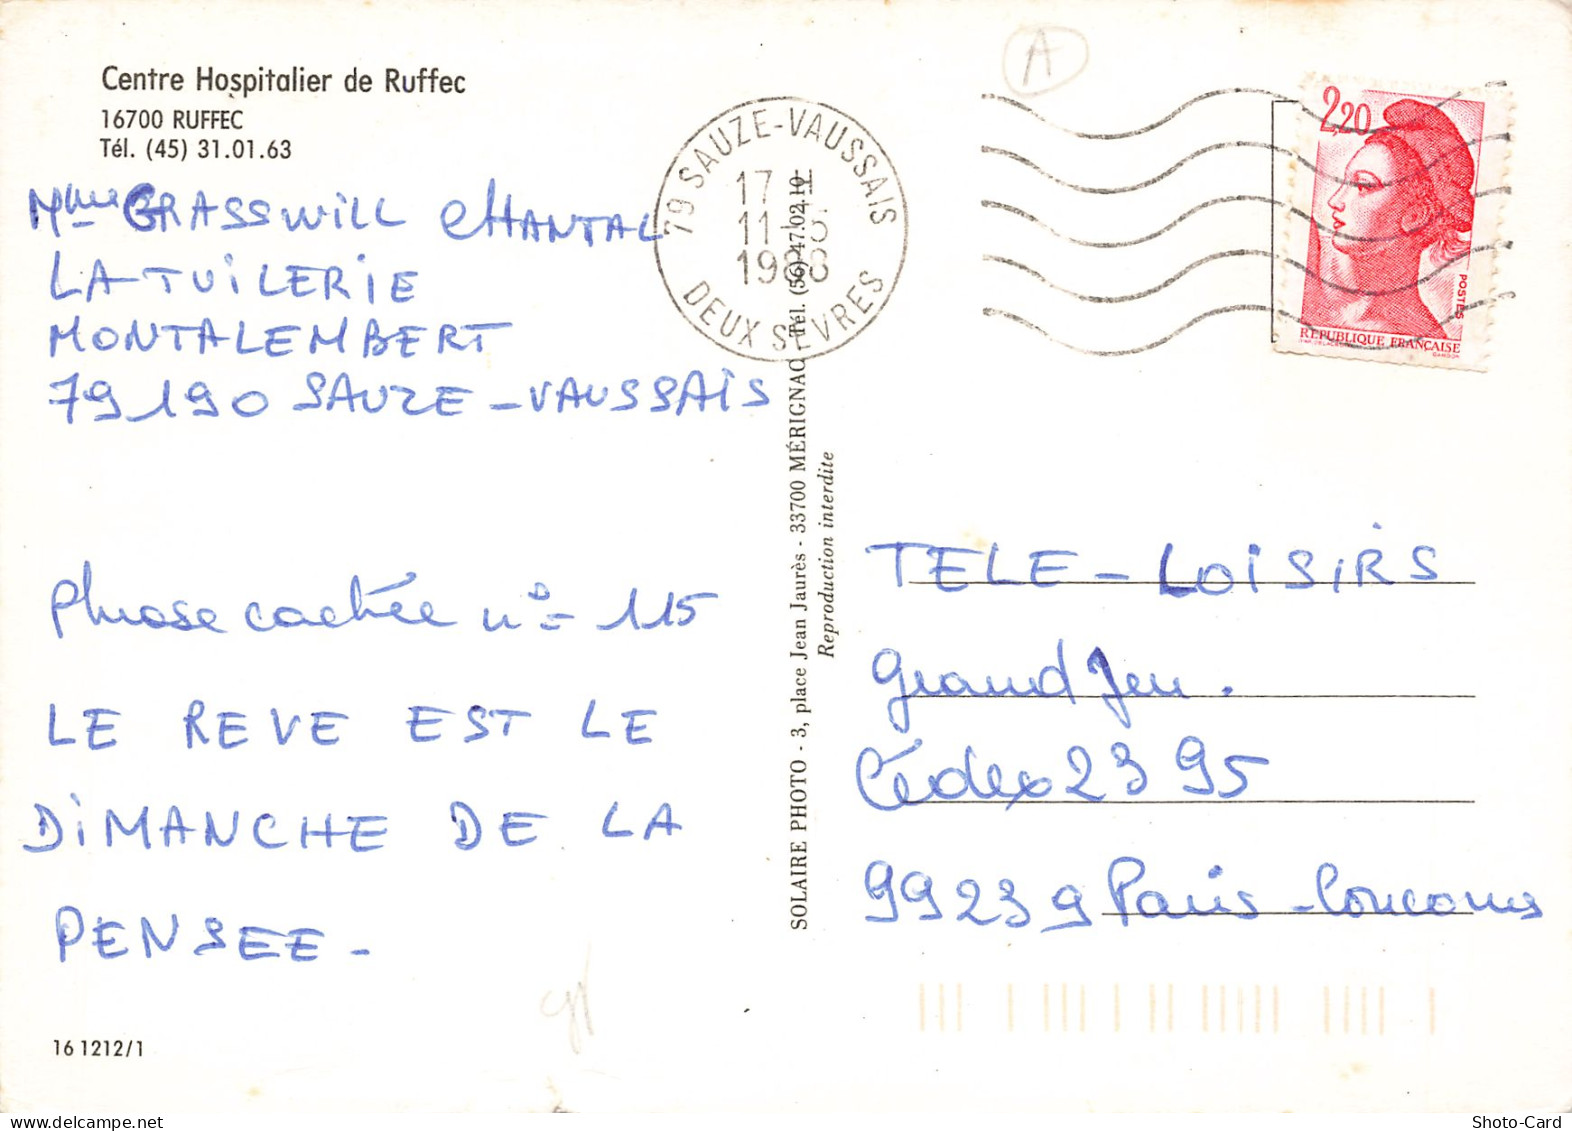 Centre Hospitalier de Ruffec
16700 RUFFEC
Tél. (45) 31.01.63
Mme GRASSWILL CHANTAL
LA TUILERIE
MONTALEMBERT
79190 SAUZE-VAUSSAIS
Phrase cachée n° = 115
LE REVE EST LE
DIMANCHE DE LA
PENSEE -
16 1212/1
A
79 SAUZE-VAUSSAIS
17 H
11-5
1988
DEUX SEVRES
2,20
POSTES
REPUBLIQUE FRANÇAISE
GANDON
SOLAIRE PHOTO - 3, place Jean Jaurès - 33700 MÉRIGNAC Tél. (56) 47.02.10
Reproduction interdite
TELE - LOISIRS
Grand Jeu.
Cédex 23 95
99239 Paris - Concours
delcampe.net
Shoto-Card